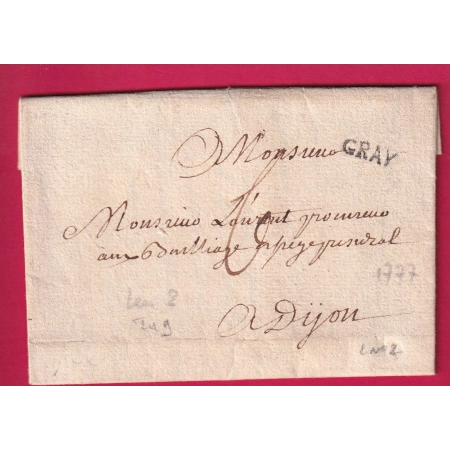 Monsieur GRAY
Monsieur Laurent procureur
aux Bailliage et siège presidial
1777
Len 8
a Dijon
L N° 2